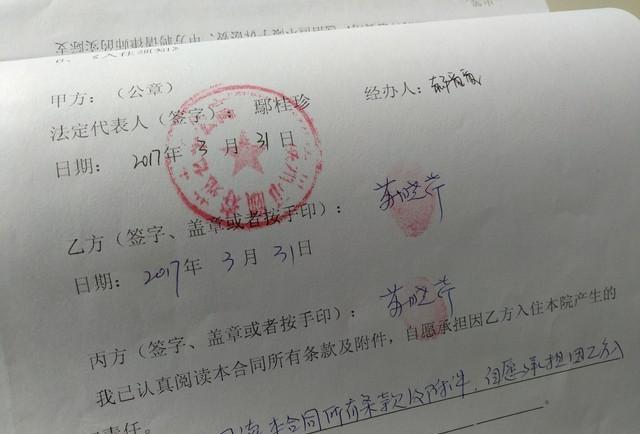 甲方：（公章）
法定代表人（签字）：鄢桂珍 经办人：
日期：2017年 3月 31日
乙方（签字、盖章或者按手印）：苏晓芹
日期：2017年 3月 31日
丙方（签字、盖章或者按手印）：苏晓芹
我已认真阅读本合同所有条款及附件，自愿承担因乙方入住本院产生的
责任。
本合同所有条款及附件，自愿承担因乙方入